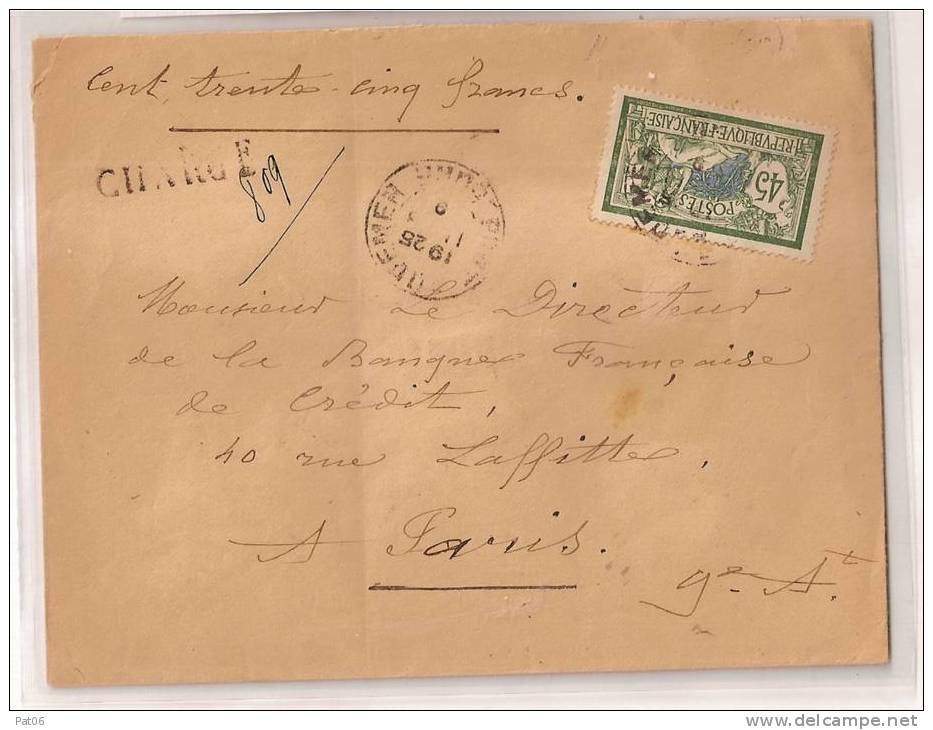 Cent trente-cinq francs.
CHARGE
809
1925
REPVBLIQVE·FRANÇAISE
45
POSTES
Monsieur Le Directeur
de la Banque Française
de Crédit,
40 rue Laffitte,
A Paris.
9e At
Pat06
http://www.delcampe.net